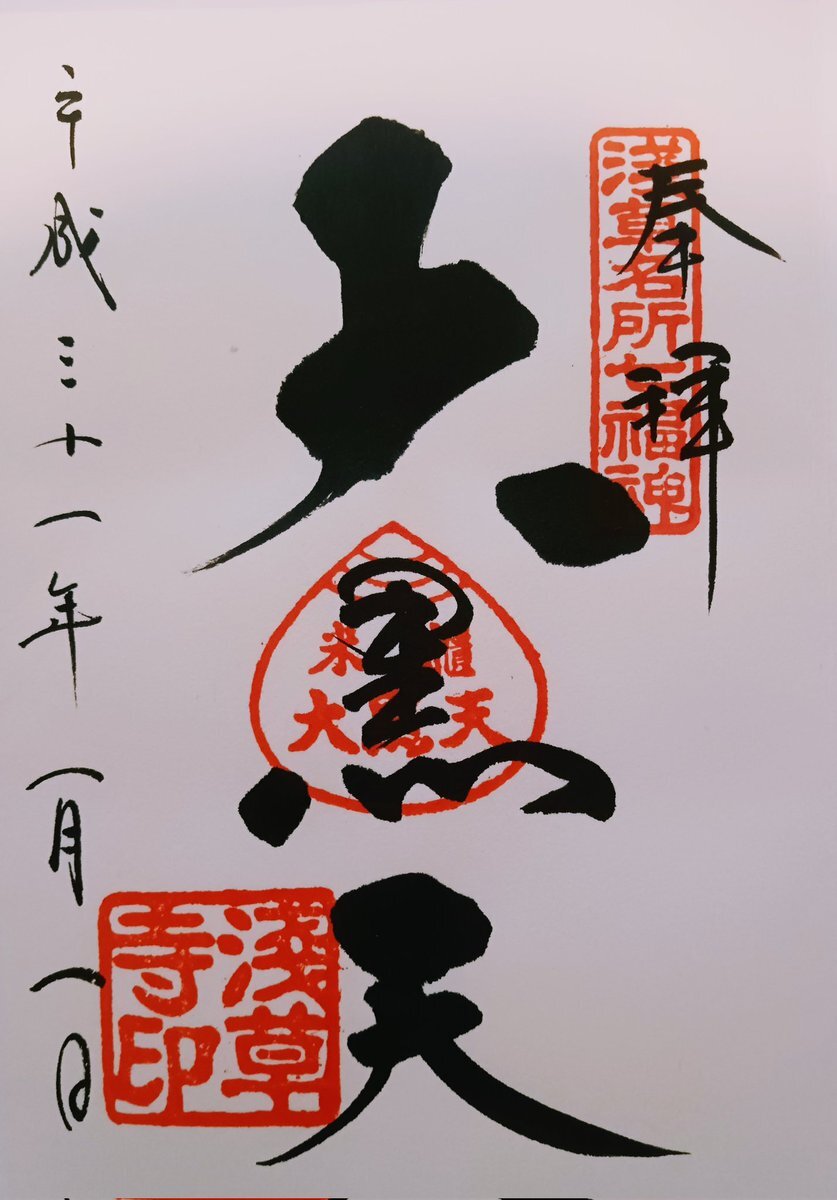 奉拝
浅草名所七福神
大黒天
米櫃
大黒天
浅草
寺印
平成三十一年一月一日